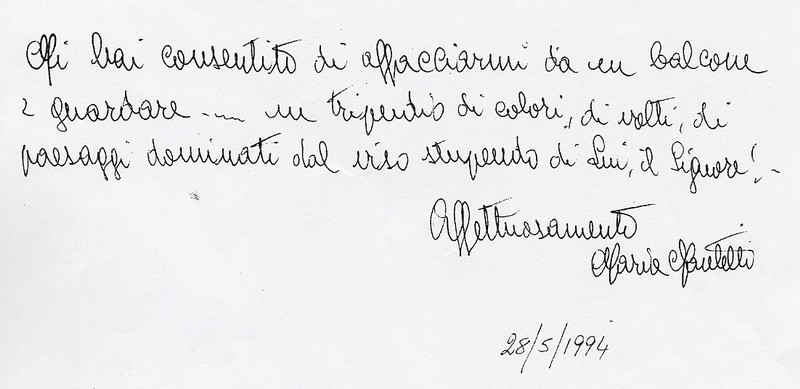 Mi hai consentito di affacciarmi da un balcone
e guardare ... un tripudio di colori, di volti, di
paesaggi dominati dal viso stupendo di Lui, il Signore!
Affettuosamente
Maria
28/5/1994